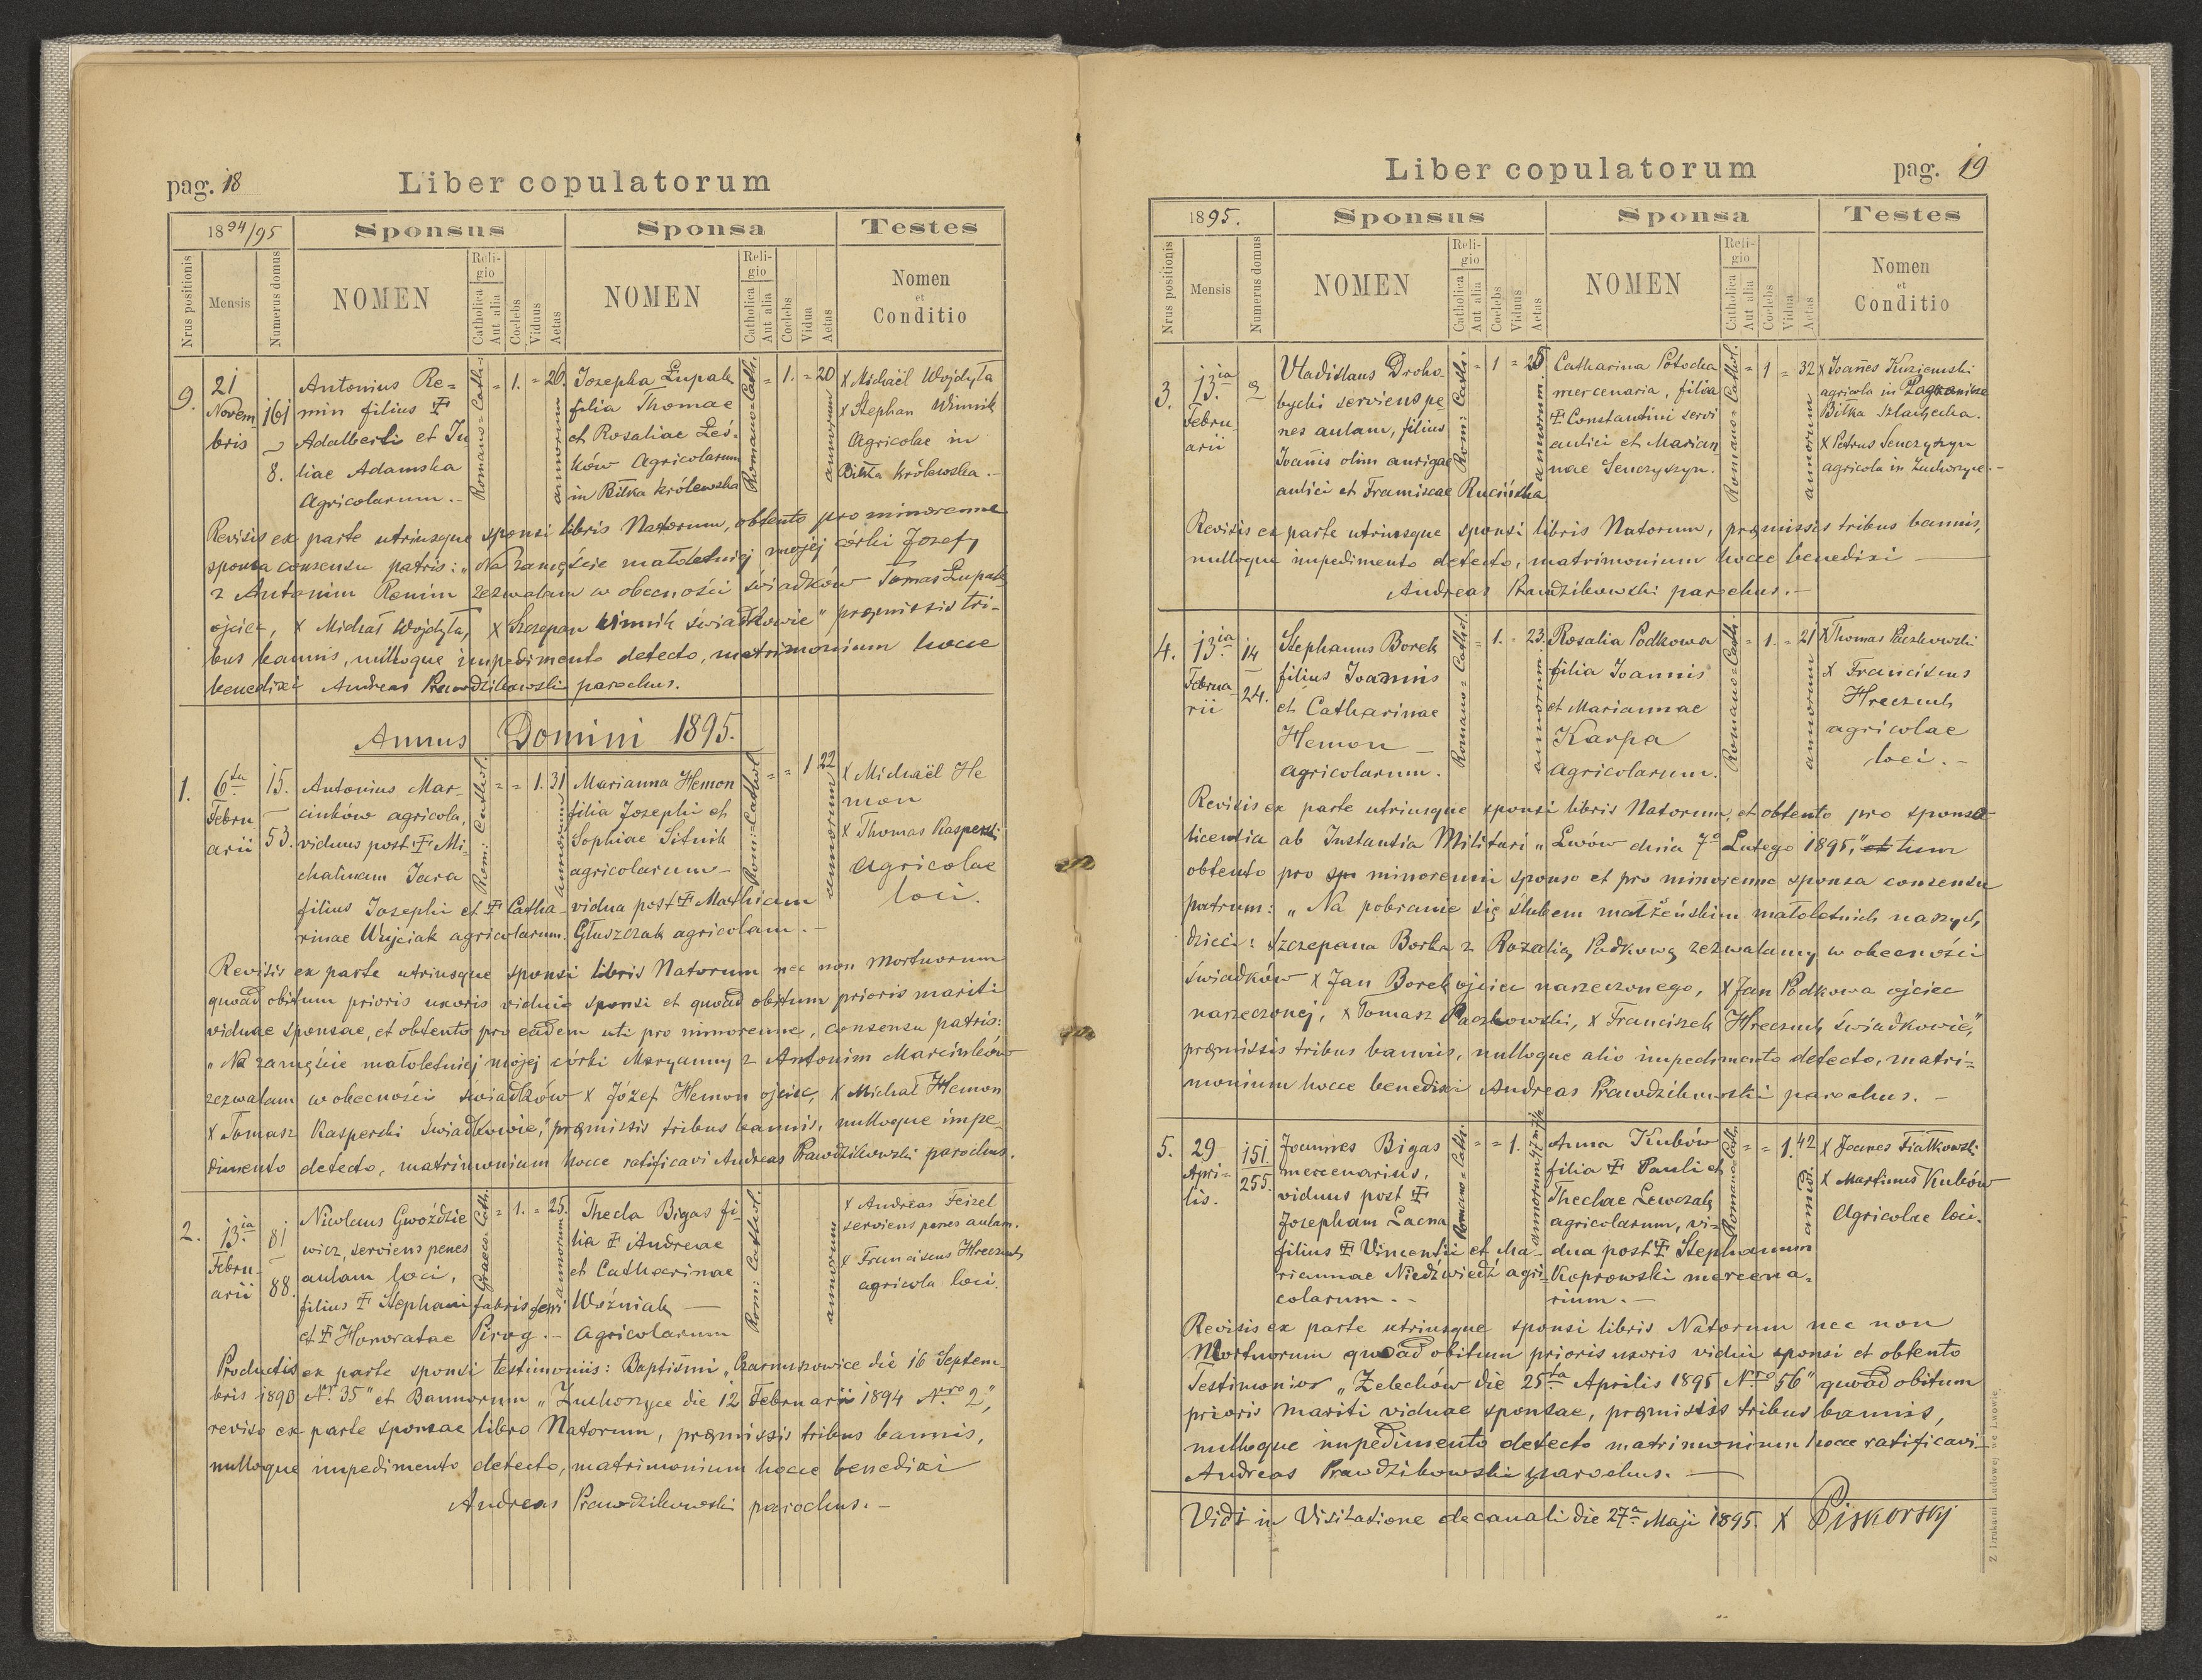 pag. 18
Liber copulatorum
1894/95
Sponsus
Sponsa
Testes
Nrus positionis
Mensis
Numerus domus
NOMEN
Religio
Catholica
Aut alia
Coelebs
Viduus
Aetas
NOMEN
Religio
Catholica
Aut alia
Coelebs
Vidua
Aetas
Nomen
et
Conditio
9. 21 Antonius Re= = 1. = 20. Josepha Łupak = 1. = 20 x Michaël Wojdyła
Novem 161 min filius Ŧ filia Thomae x Stephan Winnik
bris Adalberti et Ju et Rosaliae Leś= Agricolae in
8. liae Adamska ków Agricolarum Biłka królewska.–
Agricolarum.– in Biłka królewska
Romano=Cath:
annorum
Romano=Cath.
annorum
Revisis ex parte utriusque sponsi libris Natorum, obtento pro minorenne
sponsa consensu patris: „Na zamęście małoletniej mojéj córki Józefy
z Antonim Remin zezwalam w obecności świadków Tomas Łupak
ojciec, x Michał Wojdyła, x Szczepan Winnik świadkowie“ præmissis tri-
bus bannis, nulloque impedimento detecto, matrimonium hocce
benedixi Andreas Prawdzikowski parochus.
Annus Domini 1895.
1. 6ta 15. Antonius Mar = = 1. 31 Marianna Hemon = = 1 22 x Michaël He
Febru cinków agricola, filia Josephi et mon
arii 53. viduus post Ŧ Mi- Sophiae Sitnik x Thomas Kasperski
chalinam Jara agricolarum– agricolae
filius Josephi et Ŧ Catha vidua post Ŧ Mathiam loci.
rinae Wujciak agricolarum. Głuszczak agricolam.–
Rom: Cathol.
annorum
Rom: Cathol
annorum
Revisis ex parte utriusque sponsi libris Natorum nec non Mortuorum
quoad obitum prioris uxoris vidui sponsi et quoad obitum prioris mariti
viduae sponsae, et obtento pro eadem uti pro minorenne, consensu patris:
„Na zamęście małoletniej mojej córki Maryanny z Antonim Marcinków
zezwalam w obecności świadków x Józef Hemon ojciec, x Michał Hemon
x Tomasz Kasperski świadkowie,“ præmissis tribus bannis, nulloque impe-
dimento detecto, matrimonium hocce ratificavi Andreas Prawdzikowski parochus.
2. 13ia 81 Nicolaus Gwoździe = 1. = 25. Thecla Bigas fi- x Andreas Feizel
Febru- wicz, serviens penes lia Ŧ Andreae serviens penes aulam.
arii 88. aulam loci, et Catharinae x Franciscus Hreczuch
filius Ŧ Stephani fabris ferri Woźniak – agricola loci.
et Ŧ Honoratae Pirog.– Agricolarum
Graeco Cath.
annorum
Rom: Cathol.
annorum
Productis ex parte sponsi testimoniis: Baptismi „Czarnuszowice die 16 Septem-
bris 1893 Nr. 35“ et Bannorum „Zuchorzyce die 12 Februarii 1894 Nro 2,“
reviso ex parte sponsae libro Natorum, præmissis tribus bannis,
nulloque impedimento detecto, matrimonium hocce benedixi
Andreas Prawdzikowski parochus.–
Liber copulatorum
pag. 19
1895.
Sponsus
Sponsa
Testes
Nrus positionis
Mensis
Numerus domus
NOMEN
Religio
Catholica
Aut alia
Coelebs
Viduus
Aetas
NOMEN
Religio
Catholica
Aut alia
Coelebs
Vidua
Aetas
Nomen
et
Conditio
3. 13.ia Vladislaus Droho = 1 = 25 Catharina Potocka = 1 = 32 x Joañes Kuziemski
Febru- bycki serviens pe mercenaria, filia agricola in
arii nes aulam, filius Ŧ Constantini servi Biłka Szlachecka.
Joañis olim aurigae aulici et Marian x Petrus Senczyszyn
aulici et Franciscae Rucińska nae Senczyszyn. agricola in Zuchorzyce.–
Rom: Cath.
annorum
Romano=Cathol.
annorum
Revisis ex parte utriusque sponsi libris Natorum, præmissis tribus bannis,
nulloque impedimento detecto, matrimonium hocce benedixi –
Andreas Prawdzikowski parochus.–
4. 13ia 14 Stephanus Borek = 1. = 23. Rosalia Podkowa = 1. = 21 x Thomas Paczkowski
Februa 24. filius Joannis filia Joannis x Franciscus
rii et Catharinae et Mariannae Hreczuch
Hemon – Karpa agricolae
agricolarum. agricolarum. loci.–
Romano=Cathol.
annorum
Romano=Cath.
annorum
Revisis ex parte utriusque sponsi libris Natorum, et obtento pro sponso
licentia ab Instantia Militari „Lwów dnia 7o Lutego 1895,“ et tum
obtento pro sp minorenni sponso et pro minorenne sponsa consensu
patrum: „Na pobranie się ślubem małżeńskim małoletnich naszych
dzieci: Szczepana Borka z Rozalią Podkową zezwalamy w obecności
świadków x Jan Borek ojciec narzeczonego, x Jan Podkowa ojciec
narzeczonéj, x Tomasz Paczkowski, x Franciszek Hreczuch świadkowie,“
præmissis tribus bannis, nulloque alio impedimento detecto, matri=
monium hocce benedixi Andreas Prawdzikowski parochus.–
5. 29 151. Joannes Bigas = = 1. Anna Kubów = = 1. 42 x Joanes Fiałkowski
Apri- 255. mercenarius, filia Ŧ Pauli et x Martinus Kubów
lis. viduus post Ŧ Theclae Lewczak Agricolae loci.
Josepham Lacna agricolarum, vi-
filius Ŧ Vincentii et Ma- dua post Ŧ Stephanum
riannae Niedźwiedź agri- Koprowski mercena-
colarum.– rium.–
Romano=Cath.
annorum 47
Romano=Cath.
Revisis ex parte utriusque sponsi libris Natorum nec non
Mortuorum quoad obitum prioris uxoris vidui sponsi et obtento
Testimonio „Żelechów die 25ta Aprilis 1895 Nro 56“ quoad obitum
prioris mariti viduae sponsae, præmissis tribus bannis,
nulloque impedimento detecto matrimonium hocce ratificavi–
Andreas Prawdzikowski parochus.–
Vidi in Visitatione decanali die 27a Maji 1895. X Piskorsky
Z Drukarni Ludowej we Lwowie